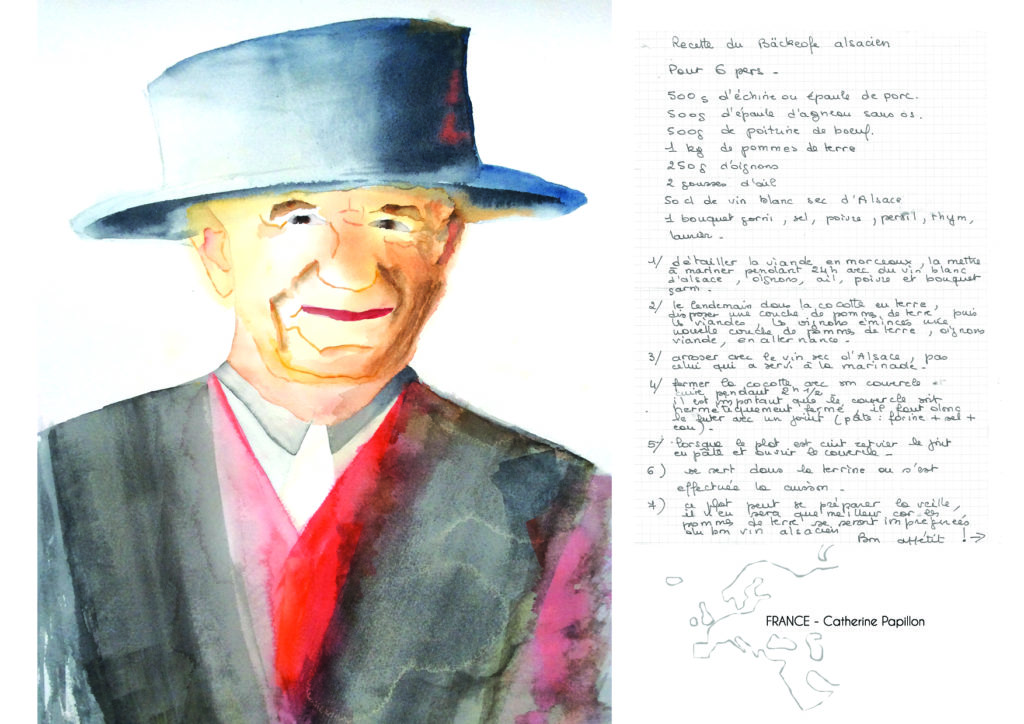 Recette du Bäckeofe alsacien
Pour 6 pers -
500 g d'échine ou épaule de porc.
500g d'épaule d'agneau sans os.
500g de poitrine de boeuf.
1 kg de pommes de terre
250g d'oignons
2 gousses d'ail
50 cl de vin blanc sec d'Alsace
1 bouquet garni, sel, poivre, persil, thym,
laurier.
1/ détailler la viande en morceaux, la mettre
à mariner pendant 24h avec du vin blanc
d'alsace, oignons, ail, poivre et bouquet
garni.
2/ le lendemain dans la cocotte en terre,
disposer une couche de pommes de terre, puis
les viandes, les oignons émincés
nouvelle couche de pommes de terre, oignons
viande, en alternance.
3/ arroser avec le vin sec d'Alsace, pas
celui qui a servi à la marinade.
4/ fermer la cocotte avec son couvercle et
cuire pendant 2h 1/2
il est important que le couvercle soit
hermétiquement fermé. il faut donc
le luter avec un joint (pâte : farine + sel +
eau).
5/ lorsque le plat est cuit retirer le joint
en pâte et ouvrir le couvercle.
6) se sert dans la terrine ou s'est
effectuée la cuisson.
7) ce plat peut se préparer la veille,
il n'en sera que meilleur car les
pommes de terre se seront imprégnées
du bon vin alsacien
Bon appétit ! →
FRANCE - Catherine Papillon